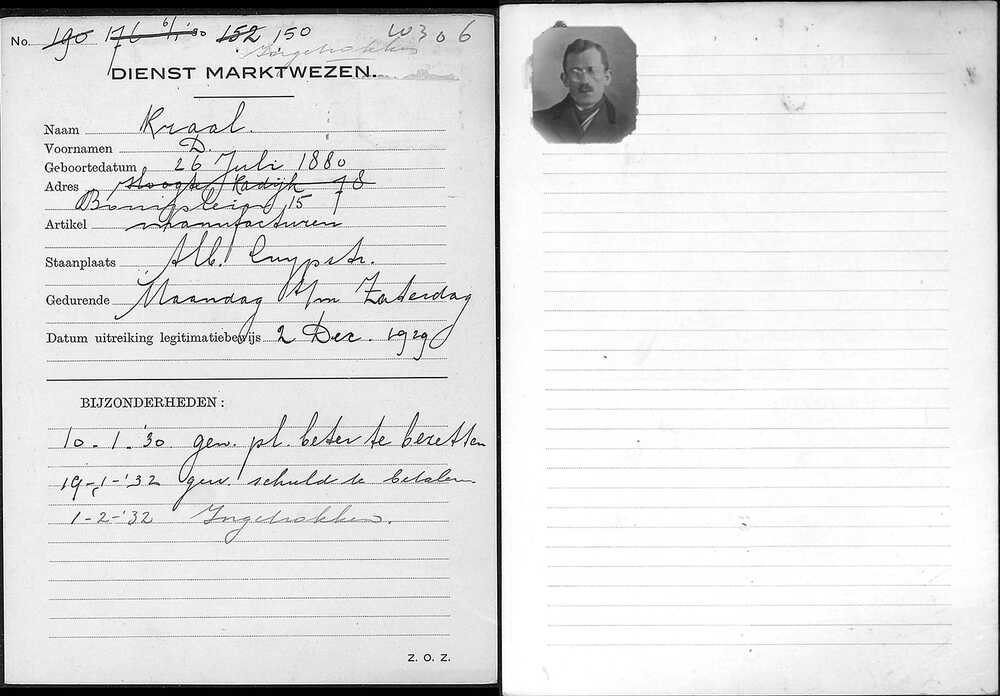 No. 190 176 6/1 '30 152 150 W306
Ingetrokken
DIENST MARKTWEZEN.
Naam Kraal.
Voornamen D.
Geboortedatum 26 Juli 1880
Adres Hoogte Kadijk 78
15
Artikel manufacturen
Staanplaats Alb. Cuypstr.
Gedurende Maandag t/m Zaterdag
Datum uitreiking legitimatiebewijs 2 Dec. 1929
BIJZONDERHEDEN:
10-1-'30 gew. pl. beter te bezetten
19-1-'32 gew. schuld te betalen
1-2-'32 Ingetrokken.
Z. O. Z.